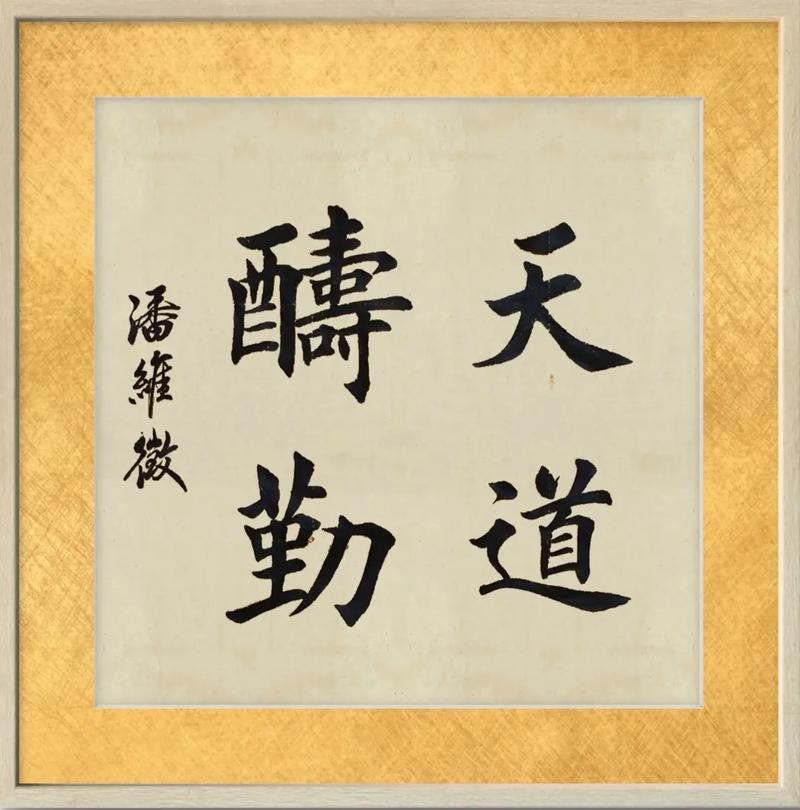 天道
醻勤
潘維徵